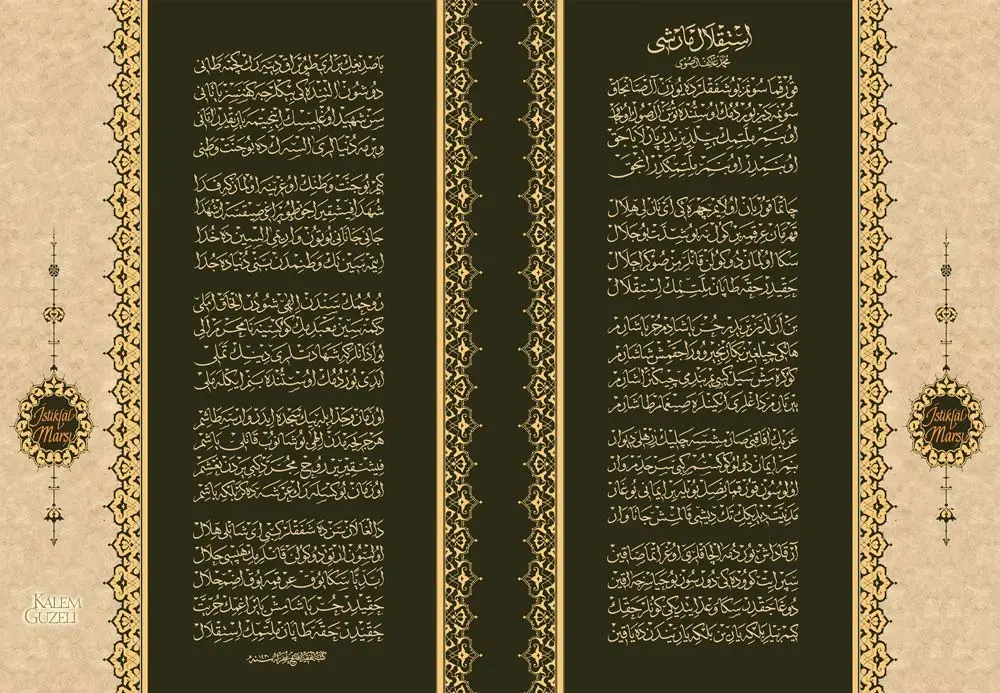 استقلال مارشی
محمد عاكف ارصوی
قورقما سونمز بو شفقلرده یوزن آل صانجاق
سونمه دن یوردمك اوستنده توتن اڭ صوڭ اوجاق
او بنم ملتمك ییلدیزیدر پارلایاجق
او بنمدر او بنم ملتمكدر آنجق
چاتما قوربان اولایم چهره كی ای نازلی هلال
قهرمان عرقمه بر گول نه بو شدت بو جلال
سكا اولماز دوكولن قانلرمز صوكرا حلال
حقیدر حقه طاپان ملتمك استقلال
بن ازلدنبریدر حر یاشادم حر یاشارم
هانگی چیلغین بكا زنجیر ووراجقمش شاشارم
كوكره مش سیل كبی یم بندیمی چیكنر آشارم
ییرتارم طاغلری انكینلره صیغمام طاشارم
غربك آفاقنی صارمشسه چلیك زرهلی دیوار
بنم ایمان دولو كوكسم كبی سرحدم وار
اولوسون قورقما ناصل بویله بر ایمانی بوغار
مدنیت دیدیكك تك دیشی قالمش جاناوار
آرقاداش یوردیمه آلچاقلری اوغراتما صاقین
سپر ایت كوده كی دورسون بو حیاسزجه آقین
دوغاجقدر سكا وعد ایتدیكی كونلر حقك
كیم بیلیر بلكه یارین بلكه یاریندن ده یاقین
باصدیغك یرلری طوپراق دییه رك كچمه طانی
دوشون آلتنده كی بیكلرجه كفنسز یاتانی
سن شهید اوغلیسك اینجیتمه یازیقدر آتاكی
ویرمه دنیالری آلسه ك ده بو جنت وطنی
كیم بو جنت وطنك اوغرینه اولماز كه فدا
شهدا فیشقیراجق طوپراغی صیقسه ك شهدا
جانی جانانی بوتون واریمی آلسین ده خدا
ایتمه سین تك وطنمدن بنی دنیاده جدا
روحمك سندن الهی شودر آنجق املی
دكمه سین معبدیمك كوكسنه نامحرم الی
بو اذانلر كه شهادتلری دینك تملی
ابدی یوردیمك اوستنده بنم ایكله ملی
او زمان وجد ایله بیك سجده ایدر وارسه طاشم
هر جریحه مدن الهی بوشانوب قانلی یاشم
فیشقیریر روح مجرد كبی یردن نعشم
او زمان یوكسله رك عرشه دكر بلكه باشم
دالغالان سن ده شفقلر كبی ای شانلی هلال
اولسون آرتق دوكولن قانلریمك هپسی حلال
ابدیا سكا یوق عرقمه یوق اضمحلال
حقیدر حر یاشامش بایراغمك حریت
حقیدر حقه طاپان ملتمك استقلال
İstiklâl
Marşı
İstiklâl
Marşı
KALEM
GÜZELİ